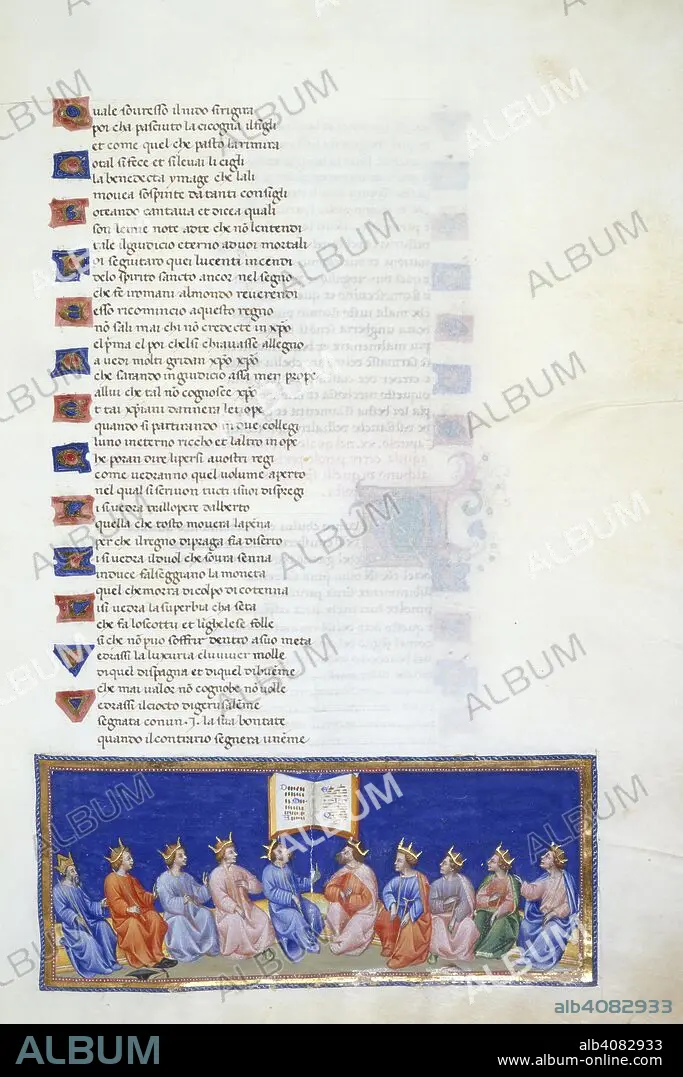 uale souresso il nido si rigira
poi cha pasciuto la cicogna i suo figli
et come quel che pasto la rimira
otal si fece et si leuai li cigli
la benedecta ymage che lali
mouea sospinte da tanti consigli
oteando cantaua et dicea quali
son le mie note a te che nō lentendi
tale il giudicio eterno a uoi mortali
oi seguitaro quei lucenti incendi
delo spirito sancto ancor nel segno
che fe i romani al mondo reuerendi
esso ricomincio a questo regno
nō sali mai chi nō credecte in xpō
el pīma el poi chel si chiauasse al legno
a uedi molti gridan xpō xpō
che saranno in giudicio assa men prope
allui che tal nō cognosce xpō
e tai xpiani dannera lethiope
quando si partiranno in due collegi
luno in eterno riccho et laltro inope
he poran dire li persi a uostri regi
come uedranno quel uolume aperto
nel qual si scriuon tucti i suoi dispregi
i si uedra tra lopere dalberto
quella che tosto mouera la pena
per che il regno di praga fia diserto
i si uedra il duol che soura senna
induce falseggiando la moneta
quel che morra di colpo di cotenna
i si uedra la superbia cha seta
che fa lo scotto et lighelese folle
si che nō puo soffrir dentro a suo meta
edrassi la luxuria el uiuer molle
di quel dispagna et di quel di bueme
che mai ualor nō cognobe nō uolle
edrassi il ciocto di gerusaleme
segnata con un .J. la sua bontate
quando il contrario segnera un eme
ALBUM
alb4082933
ALBUM
alb4082933
www.album-online.com